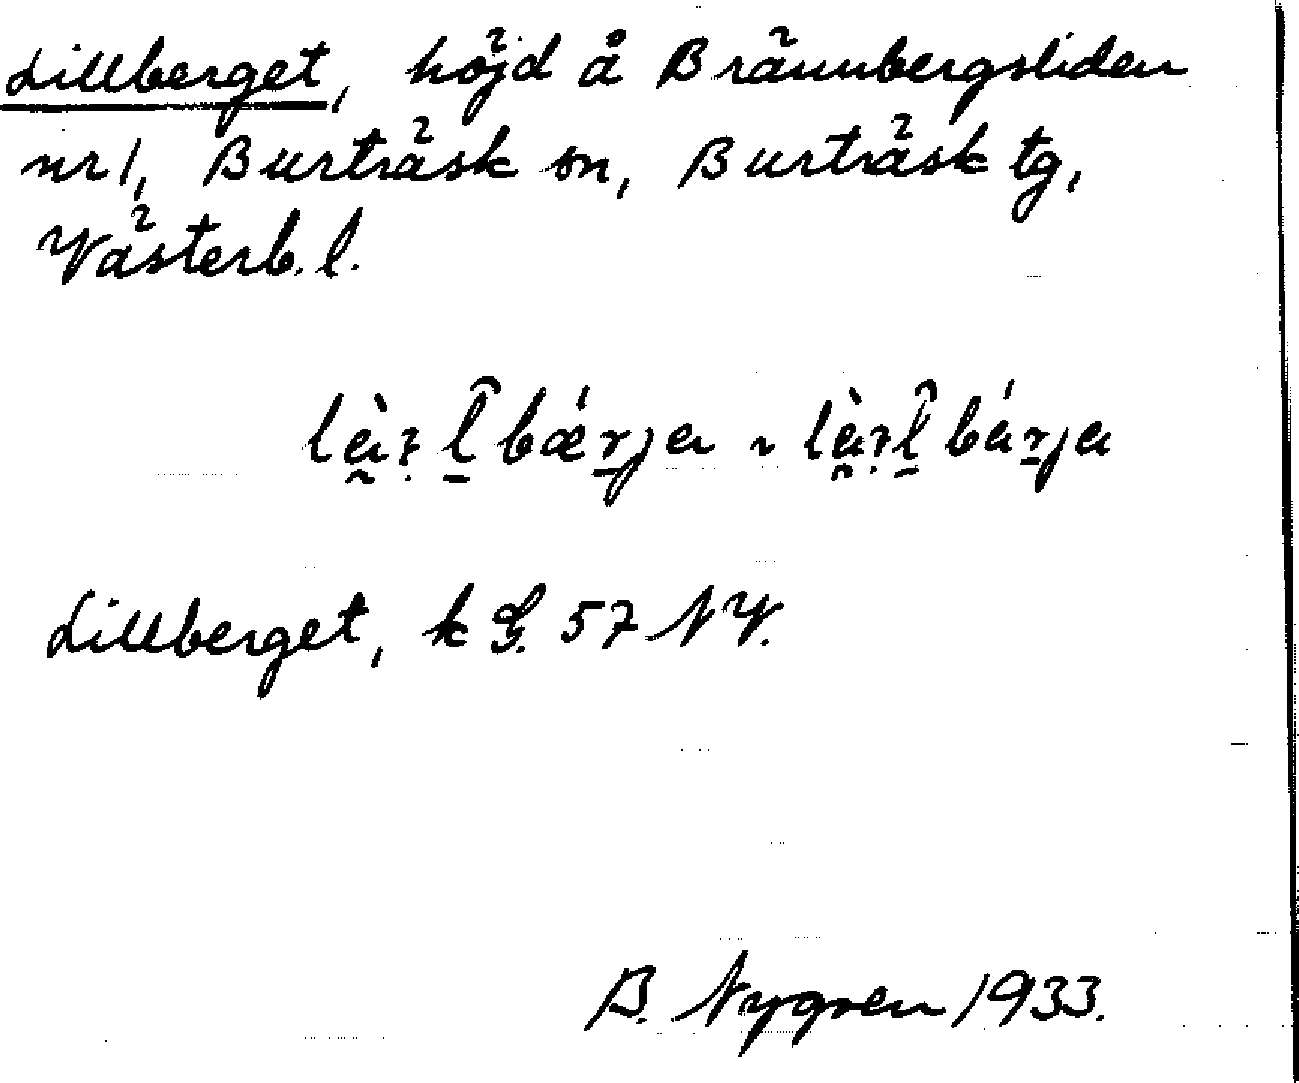 Lillberget, höjd å Brännbergsliden
nr 1, Burträsk sn, Burträsk tg,
Västerb. l.
Lillberget, k G. 57 NV.
B. Nygren 1933.